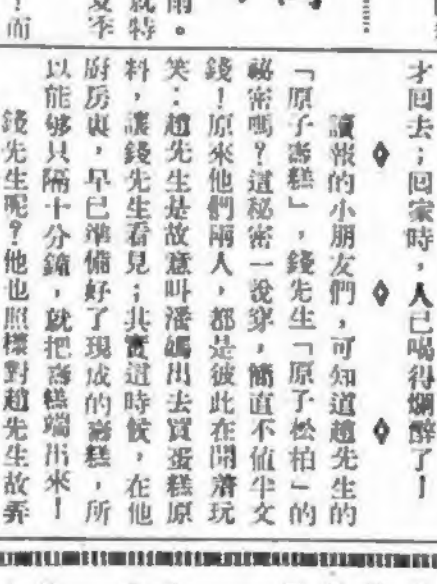 ……
雨。
就特
夏季
？而
才回去；回家時，人已喝得爛醉了！
◇　◇　◇
讀報的小朋友們，可知道趙先生的
「原子壽糕」，錢先生「原子松柏」的
祕密嗎？這秘密一說穿，簡直不值半文
錢！原來他們兩人，都是彼此在開着玩
笑：趙先生是故意叫潘媽出去買蛋糕原
料，讓錢先生看見；其實這時候，在他
廚房裏，早已準備好了現成的壽糕，所
以能够只隔十分鐘，就把壽糕端出來！
錢先生呢？他也照樣對趙先生故弄